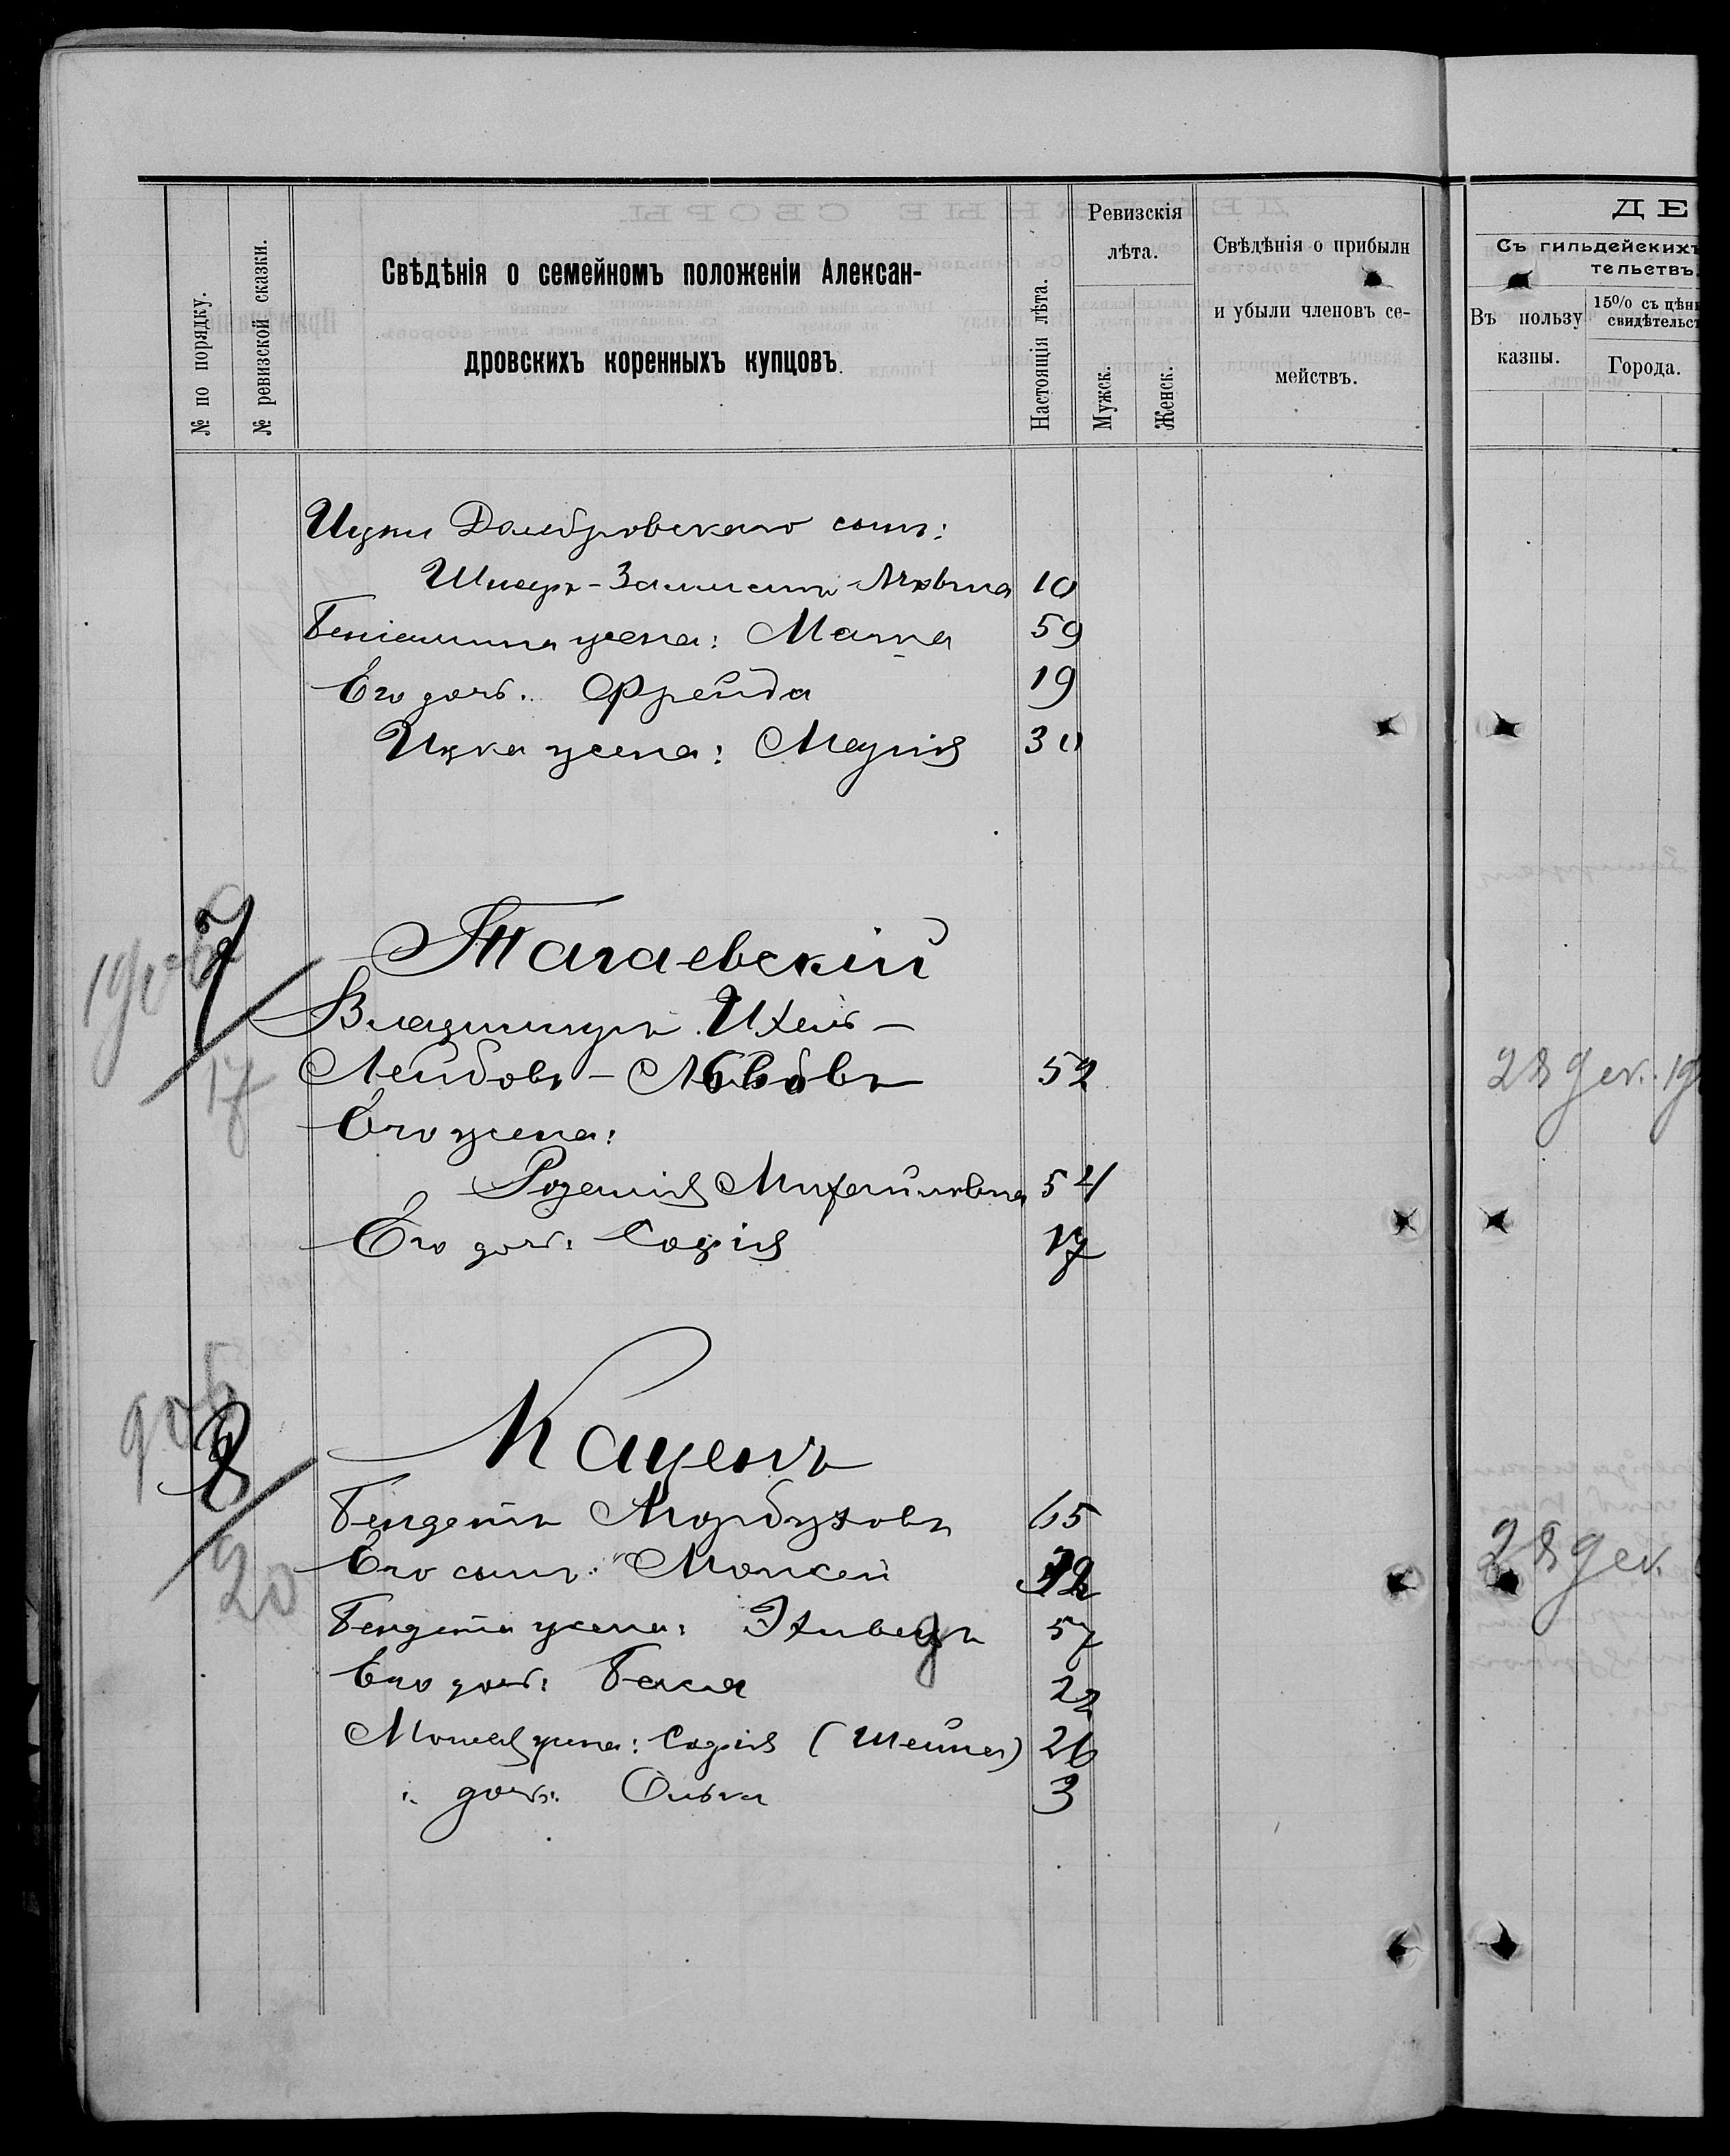 № по порядку.
№ ревизской сказки.
Свѣдѣнія о семейномъ положеніи Алексан-
дровскихъ коренныхъ купцовъ.
Настоящія лѣта.
Ревизскія
лѣта.
Мужск.
Женск.
Свѣдѣнія о прибыли
и убыли членовъ се-
мействъ.
Ицки Домбровскаго сынъ:
Шнеуръ-Залманъ 10
Беніамина жена: Матля 59
Его дочь: Фрейда 19
Ицка жена: Марія 30
7 Тагаевскій
Владимиръ Ихель-
17 Лейбовъ-Львовъ 52
Его жена:
Розалія Михайловна 54
Его дочь: Софія 17
905
8 Каценъ
Бендетъ 65
20 Его сынъ: Моисей 32
Бендета жена: 57
Его дочь: Бася 22
Моисея жена: Софія (Шейна) 26
" дочь: Ольга 3
ДЕ
Съ гильдейскихъ
тельствъ.
Въ пользу
казны.
15% съ цѣны
свидѣтельст
Города.
28 дек. 19
28 дек.